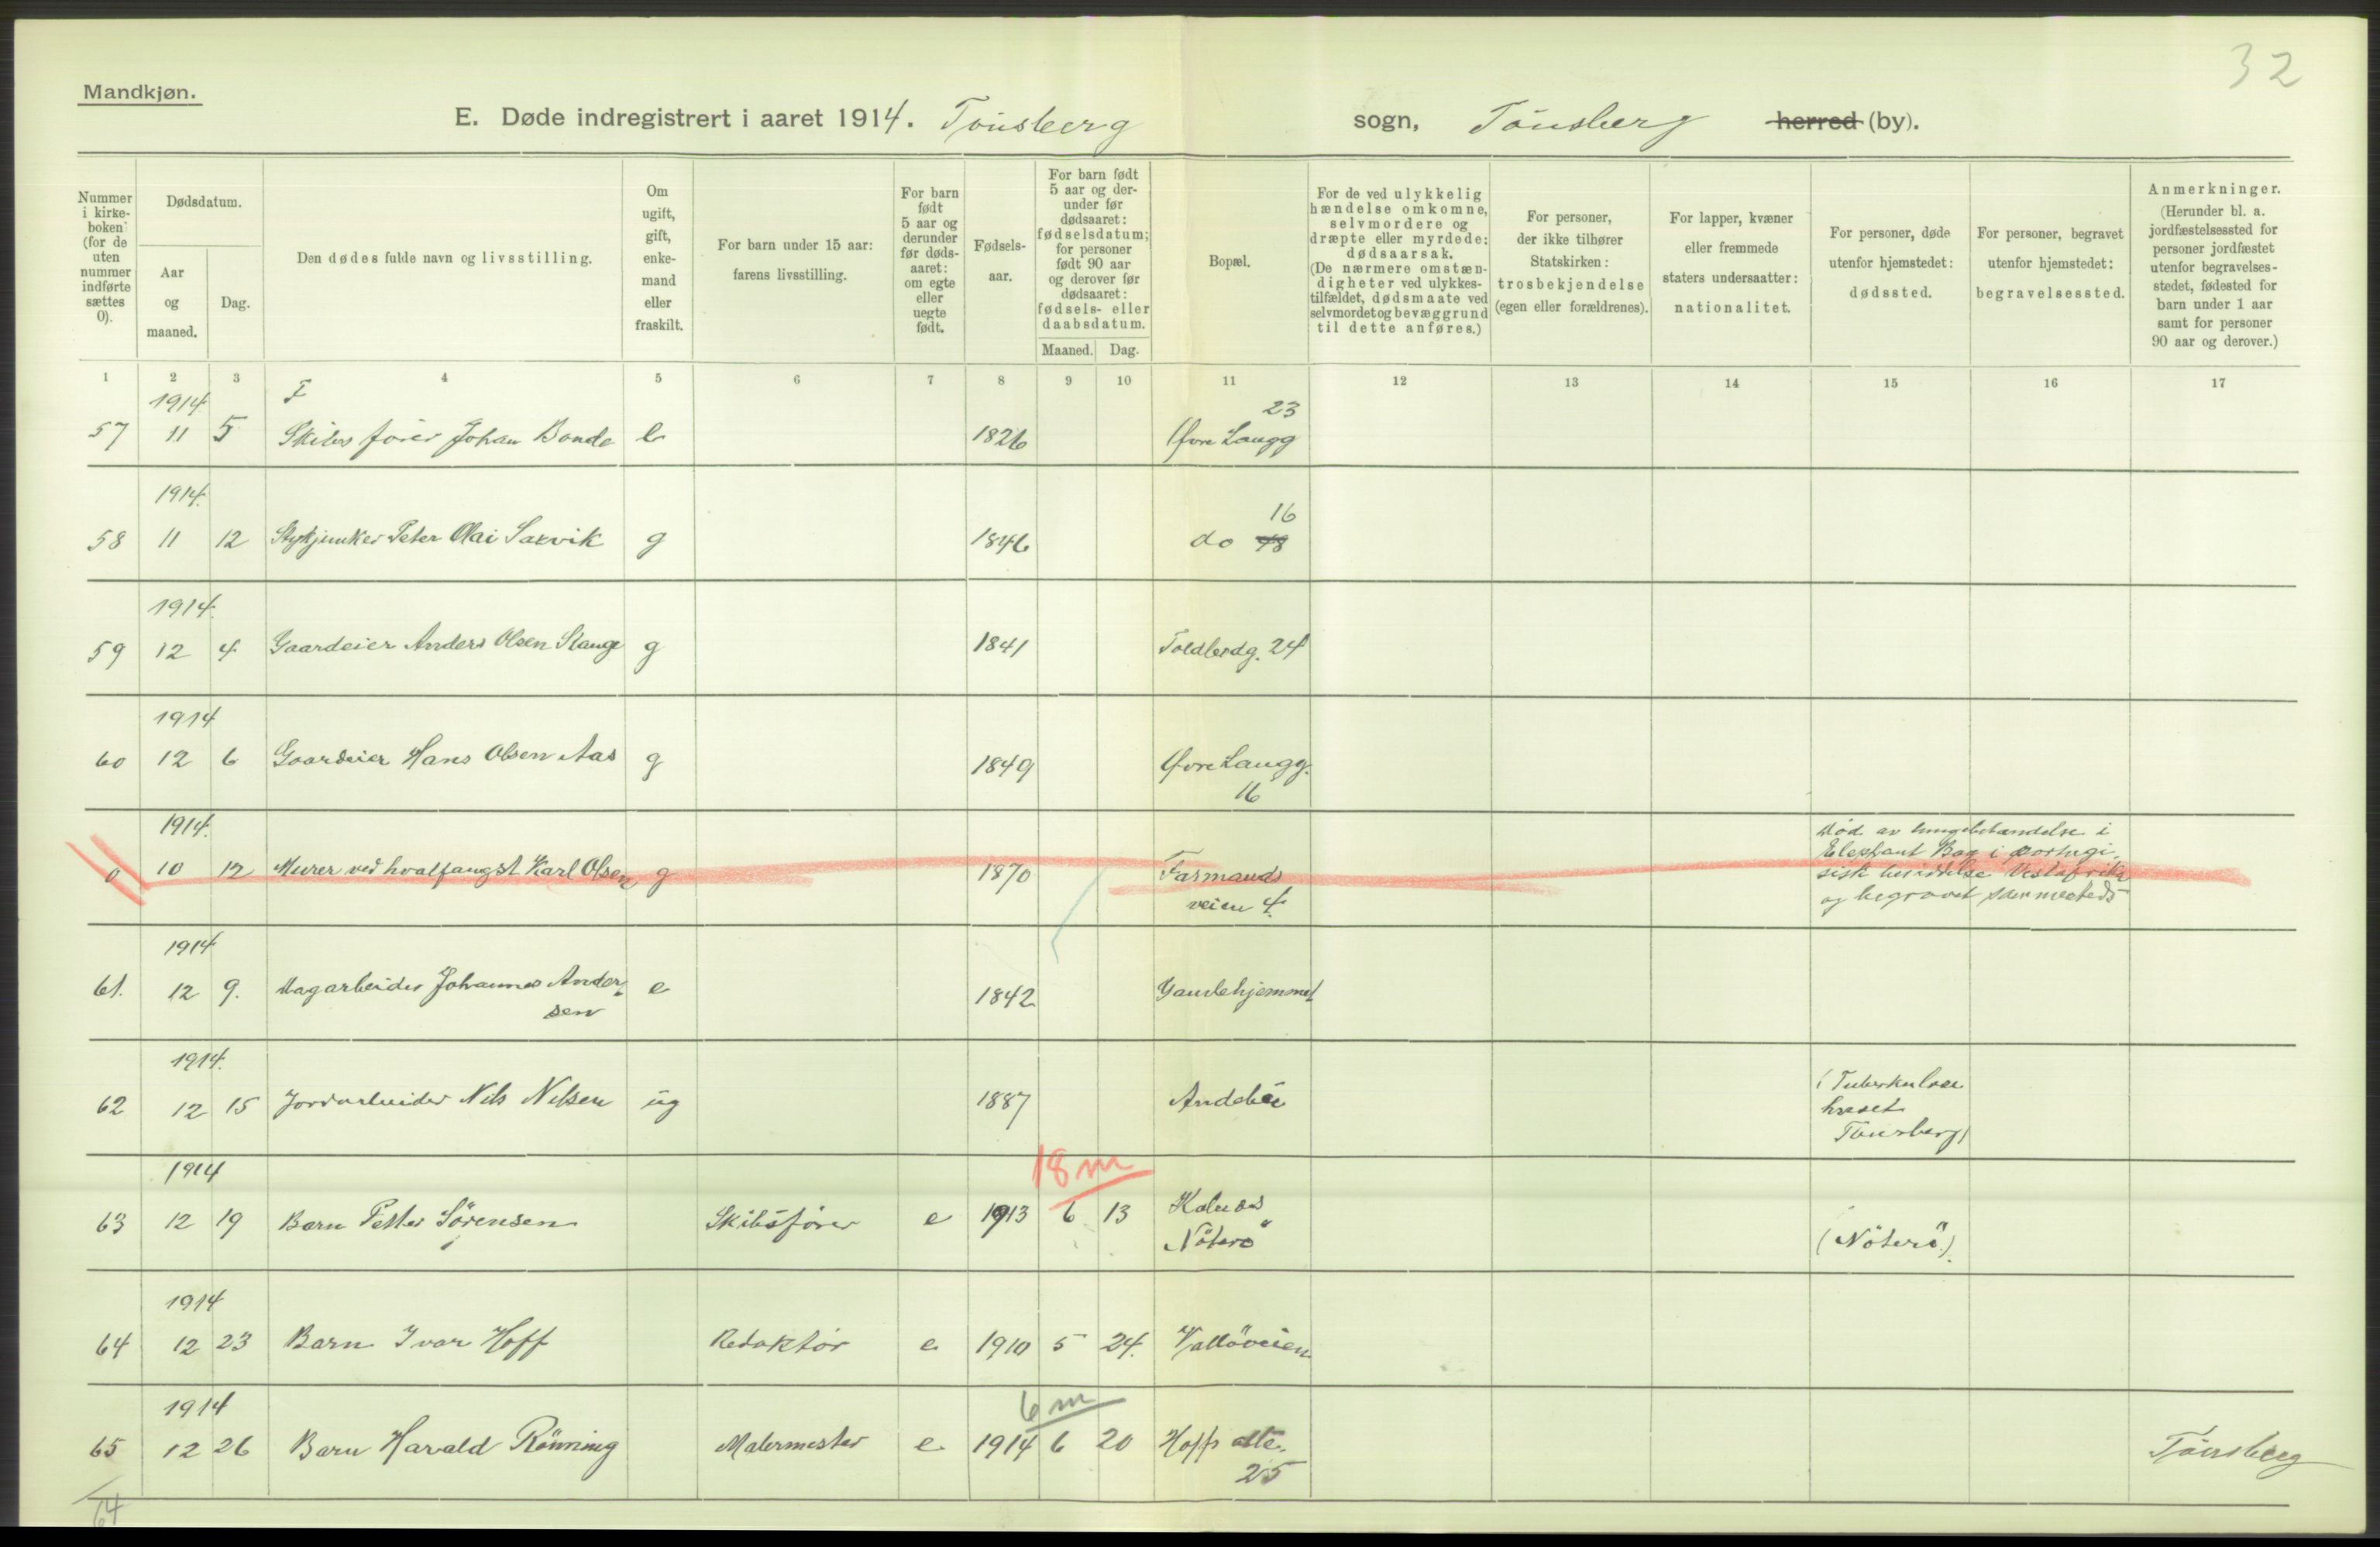 32
Mandkjøn.
E. Døde indregistrert i aaret 1914. Tönsberg sogn, Tönsberg herred (by).
Nummer i kirkeboken (for de uten nummer indførte sættes 0).
Dødsdatum.
Aar og maaned.
Dag.
Den dødes fulde navn og livsstilling.
Om ugift, gift, enkemand eller fraskilt.
For barn under 15 aar: farens livsstilling.
For barn født 5 aar og derunder før dødsaaret: om egte eller uegte født.
Fødselsaar.
For barn født 5 aar og derunder før dødsaaret: fødselsdatum; for personer født 90 aar og derover før dødsaaret: fødsels- eller daabsdatum.
Maaned. Dag.
Bopæl.
For de ved ulykkelig hændelse omkomne, selvmordere og dræpte eller myrdede: dødsaarsak. (De nærmere omstændigheter ved ulykkestilfældet, dødsmaate ved selvmordet og bevæggrund til dette anføres.)
For personer, der ikke tilhører Statskirken: trosbekjendelse (egen eller forældrenes).
For lapper, kvæner eller fremmede staters undersaatter: nationalitet.
For personer, døde utenfor hjemstedet: dødssted.
For personer, begravet utenfor hjemstedet: begravelsessted.
Anmerkninger. (Herunder bl. a. jordfæstelsessted for personer jordfæstet utenfor begravelsesstedet, fødested for barn under 1 aar samt for personer 90 aar og derover.)
1 2 3 4 5 6 7 8 9 10 11 12 13 14 15 16 17
1914 F 23
57 11 5 Skibsfører Johan Bonde e 1826 Øvre Langg
1914. 16
58 11 12 Stykjunker Peter Olai Saxvik g 1846 do 48
1914.
59 12 4 Gaardeier Anders Olsen Stange g 1841 Toldbodg. 24
1914
60 12 6 Gaardeier Hans Olsen Aas g 1849 Øvre Langg.
16
1914. Död av lungebetændelse i
0 10 12 Murer ved hvalfangst Karl Olsen g 1870 Farmands Elephant Bay i portugi
veien 4 sisk besiddelse Vestafrika
og begravet sammesteds
1914
61. 12 9. Dagarbeider Johannes Ander e 1842 Gamlehjemmet
sen
1914.
62 12 15 Jordarbeider Nils Nilsen ug 1887 Andebu (Tuberkulose
huset
Tönsberg)
1914 18 m
63 12 19 Barn Petter Sörensen Skibsförer e 1913 6 13 Kalnes
Nöterö (Nöterö.)
1914
64 12 23 Barn Ivar Hoff Redaktör e 1910 5 24. Vallöveien
1914 6 m
65 12 26 Barn Harald Rönning Malermester e 1914 6 20 Hoffs alle. Tönsberg
25
64